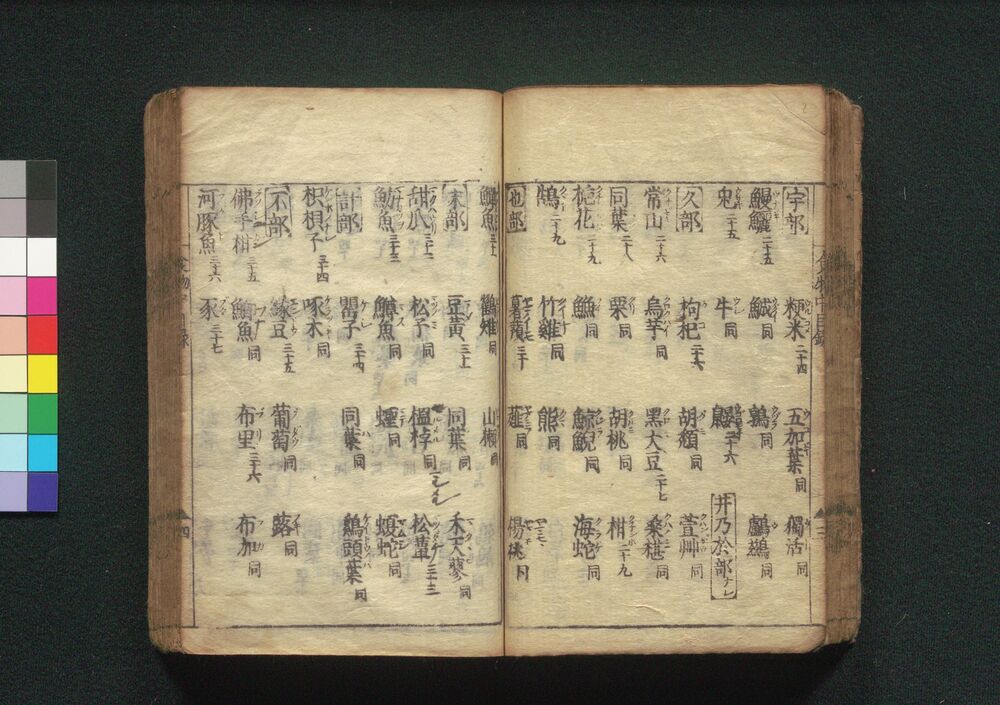 宇部 粳米 二十四 五加葉 同 獨活 同
鰻鱺 二十五 鯎 同 鶉 同 鸕鷀 同
兎 二十五 牛 同
久部 枸杞 二十六 胡頽 同 萱艸 同
井乃於部ナレ
常山 二十六 烏芋 同 黒大豆 二十七 桑椹 同
同葉 二十八 栗 同 胡桃 同 柑 二十九
梔花 二十九 鱠 同 鯨鯢 同 海蛇 同
鵠 二十九 竹雞 同 熊 同
也部 薯蕷 三十 薤 同 楊桃 同
鱅魚 三十 鸐雉 同 山獺 同
末部 豆黄 三十一 同葉 同 禾大蓼 同
甜瓜 三十二 松子 同 榲桲 同 松蕈 三十三
魴魚 三十三 鱒魚 同 蝮蛇 同
計部 罌子 三十四 同葉 同 鷄頭葉 同
枳椇子 三十四 啄木 同
不部 緑豆 三十五 葡萄 同 蕗 同
佛手柑 三十五 鯽魚 同 布里 三十六 布加 同
河豚魚 三十六 豕 三十七
四